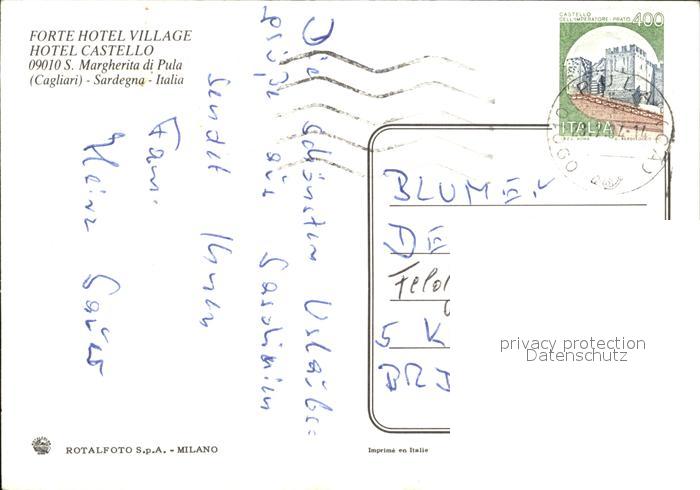 FORTE HOTEL VILLAGE
HOTEL CASTELLO
09010 S. Margherita di Pula
(Cagliari) - Sardegna - Italia
Die schönsten Urlaubs=
grüße aus Sardinien
sendet Ihnen
Fam.
Heinz
CASTELLO
DELL'IMPERATORE - PRATO 400
ITALIA
PULA (CA)
BLUMEN
DE
Feld
5 K
BRJ
privacy protection
Datenschutz
ROTALFOTO S.p.A. - MILANO
Imprimé en Italie